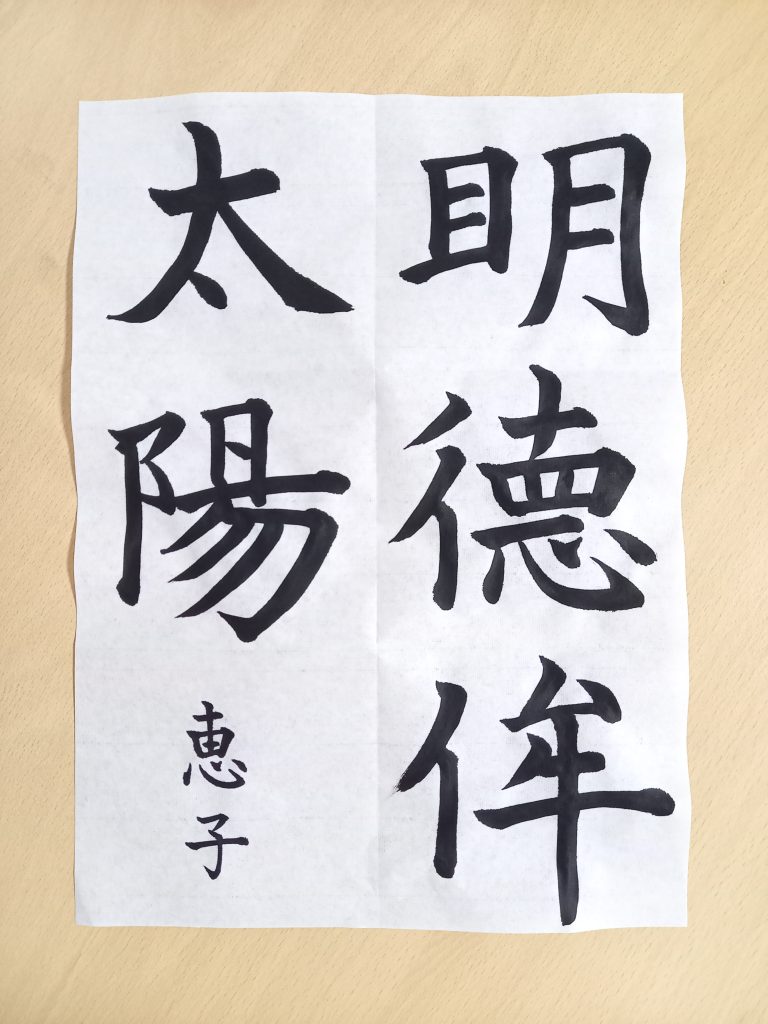 明德侔
太陽
恵子